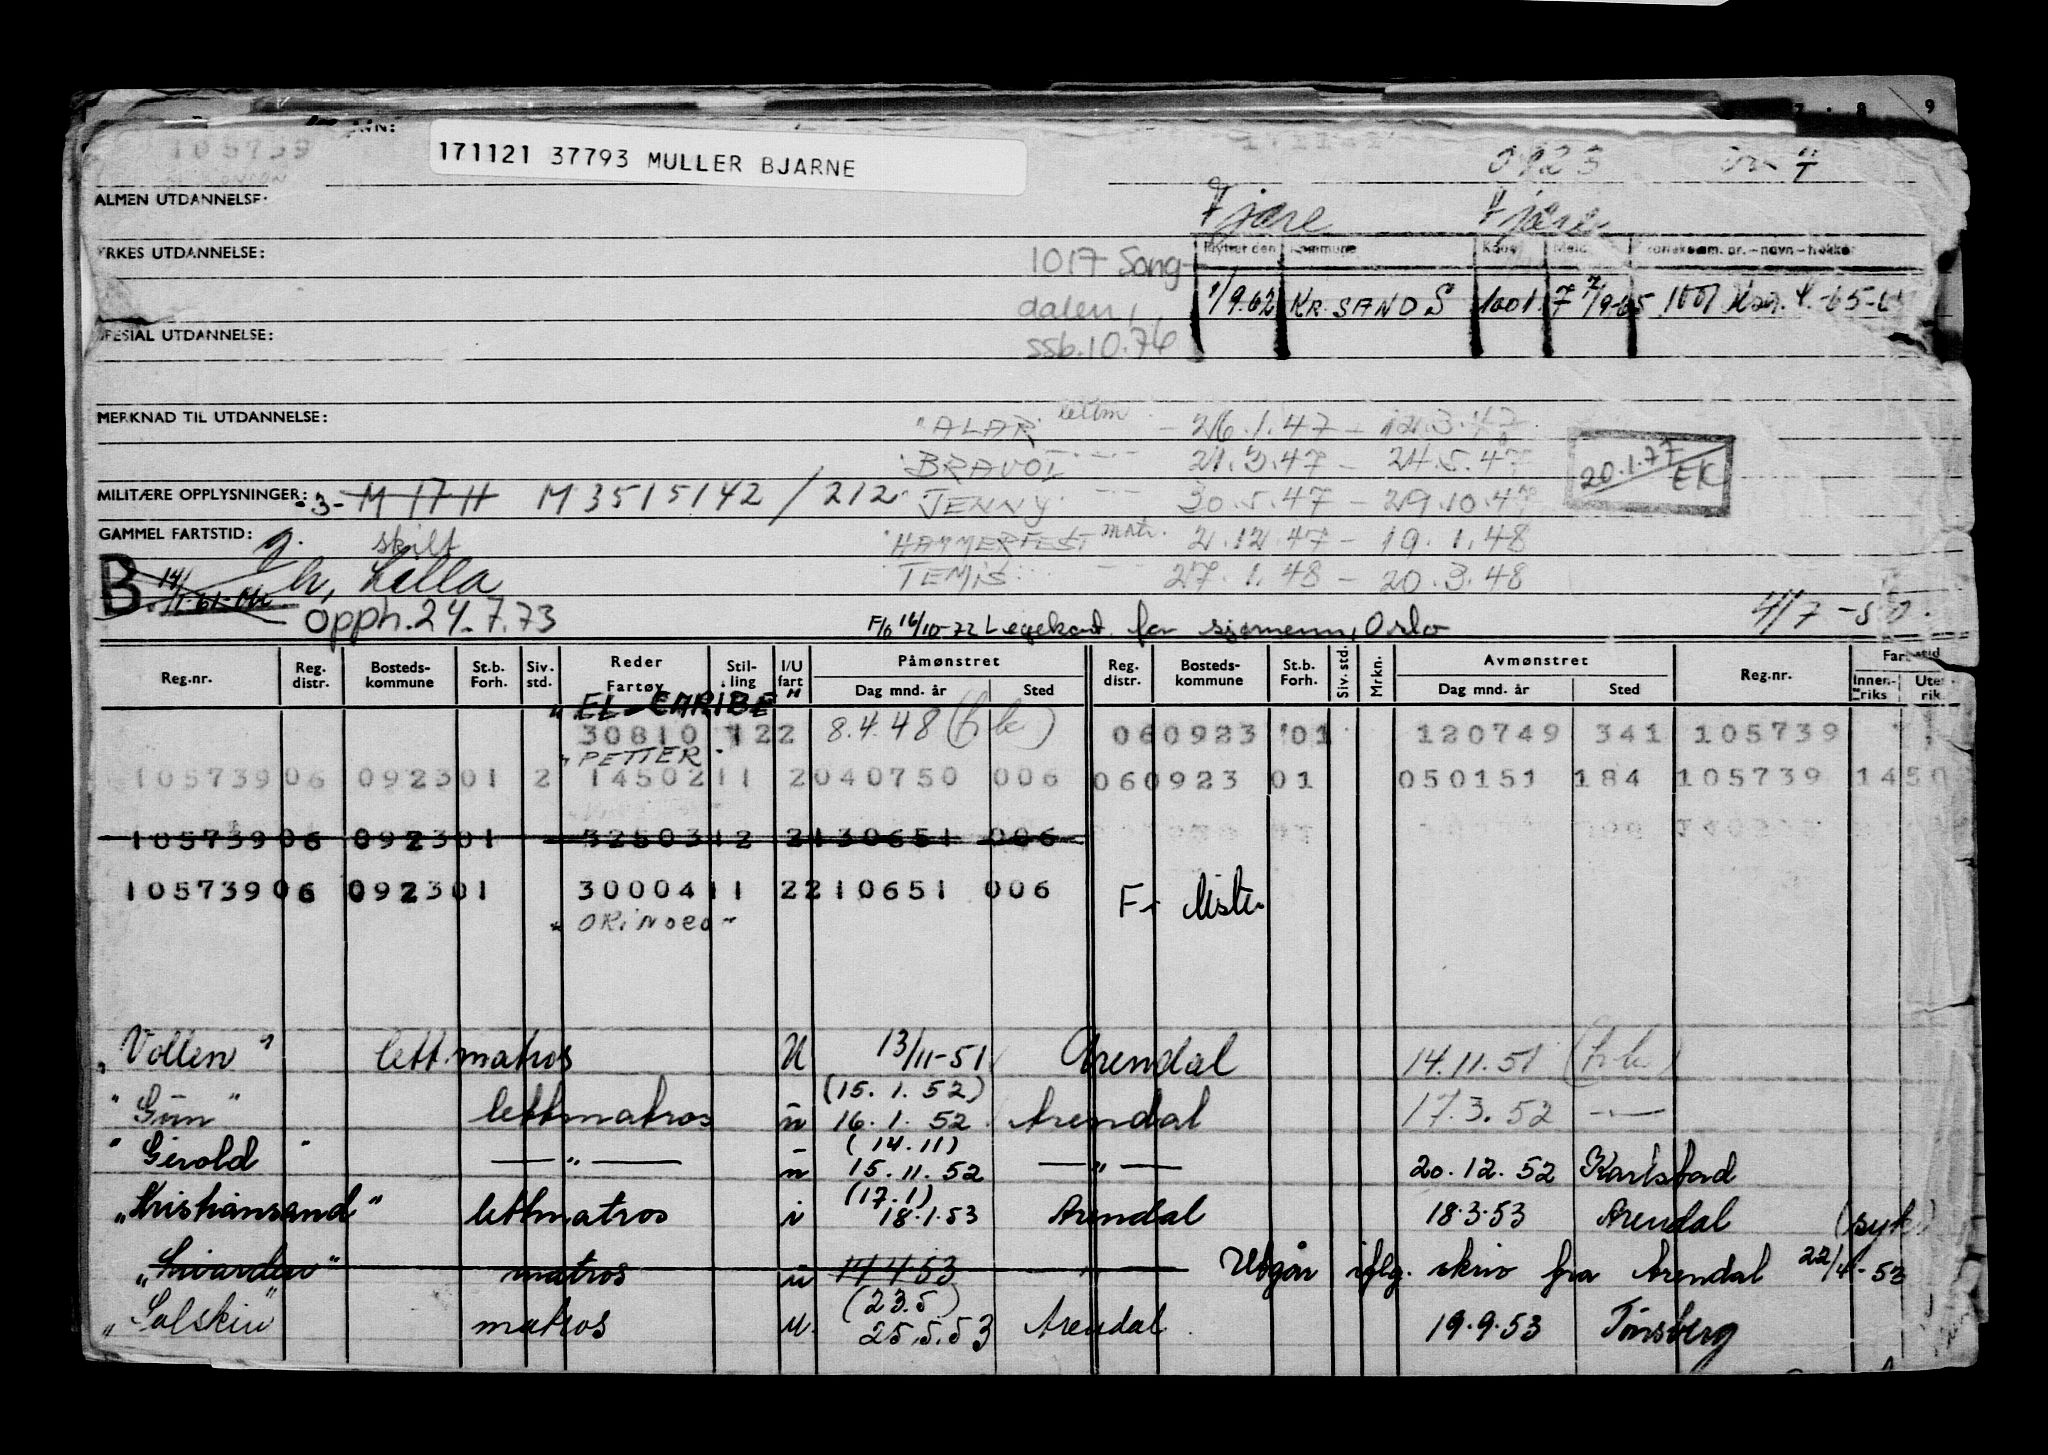 105739
171121 37793 MULLER BJARNE
0923
ALMEN UTDANNELSE:
Fjære Fjære
YRKES UTDANNELSE:
Flyttet den Kommune Kode Meld.
1017 Song-
dalen,
ssb.10.76
1/9.62 KR. SAND S 1001. 7 7/9-65
SPESIAL UTDANNELSE:
MERKNAD TIL UTDANNELSE:
"ALAR" lettm. - 26.1.47 - 12.3.47
BRAVOI -"- 21.3.47 - 24.5.47
20.1.77 EK
MILITÆRE OPPLYSNINGER: -3- M 17 H M 3515142 / 212
JENNY -"- 30.5.47 - 29.10.47
GAMMEL FARTSTID: g. skilt
HAMMERFEST matr. 2.12.47 - 19.1.48
B. h, Lella
TEMIS -"- 27.1.48 - 20.3.48
opph. 24.7.73
F/b 16/10-72 Legekont. for sjømenn, Oslo
4/7-50.
Reg.nr. Reg. distr. Bosteds- kommune St.b. Forh. Siv. std. Reder Fartøy Stil- ling I/U fart Påmønstret Dag mnd. år Sted Reg. distr. Bosteds- kommune St.b. Forh. Siv. std. Mrkn. Avmønstret Dag mnd. år Sted Reg.nr. Fartstid Innen- riks Uten- rik
"EL CARIBE"
30810 122 8.4.48 (hk) 060923 01 120749 341 105739
"PETTER"
105739 06 0923 01 2 14502 11 2 040750 006 060923 01 050151 184 105739 1450
105739 06 0923 01 32503 12 2 130651 006
105739 06 0923 01 30004 11 2 210651 006 Fr liste
"ORINOCO"
"Vollen" lett.matros U 13/11-51 Arendal 14.11.51 (hk)
(15.1.52)
"Gun" lettmatros u 16.1.52 Arendal 17.3.52 -"-
(14.11)
"Gerold" -"- u 15.11.52 -"- 20.12.52 Karlstad
(17.1)
"Kristiansand" lettmatros i 18.1.53 Arendal 18.3.53 Arendal (syk)
matros u 14.4.53 -"- Utgår iflg. skriv fra Arendal 22/4-53
(23.5)
"Solskin" matros u. 25.5.53 Arendal. 19.9.53 Tønsberg